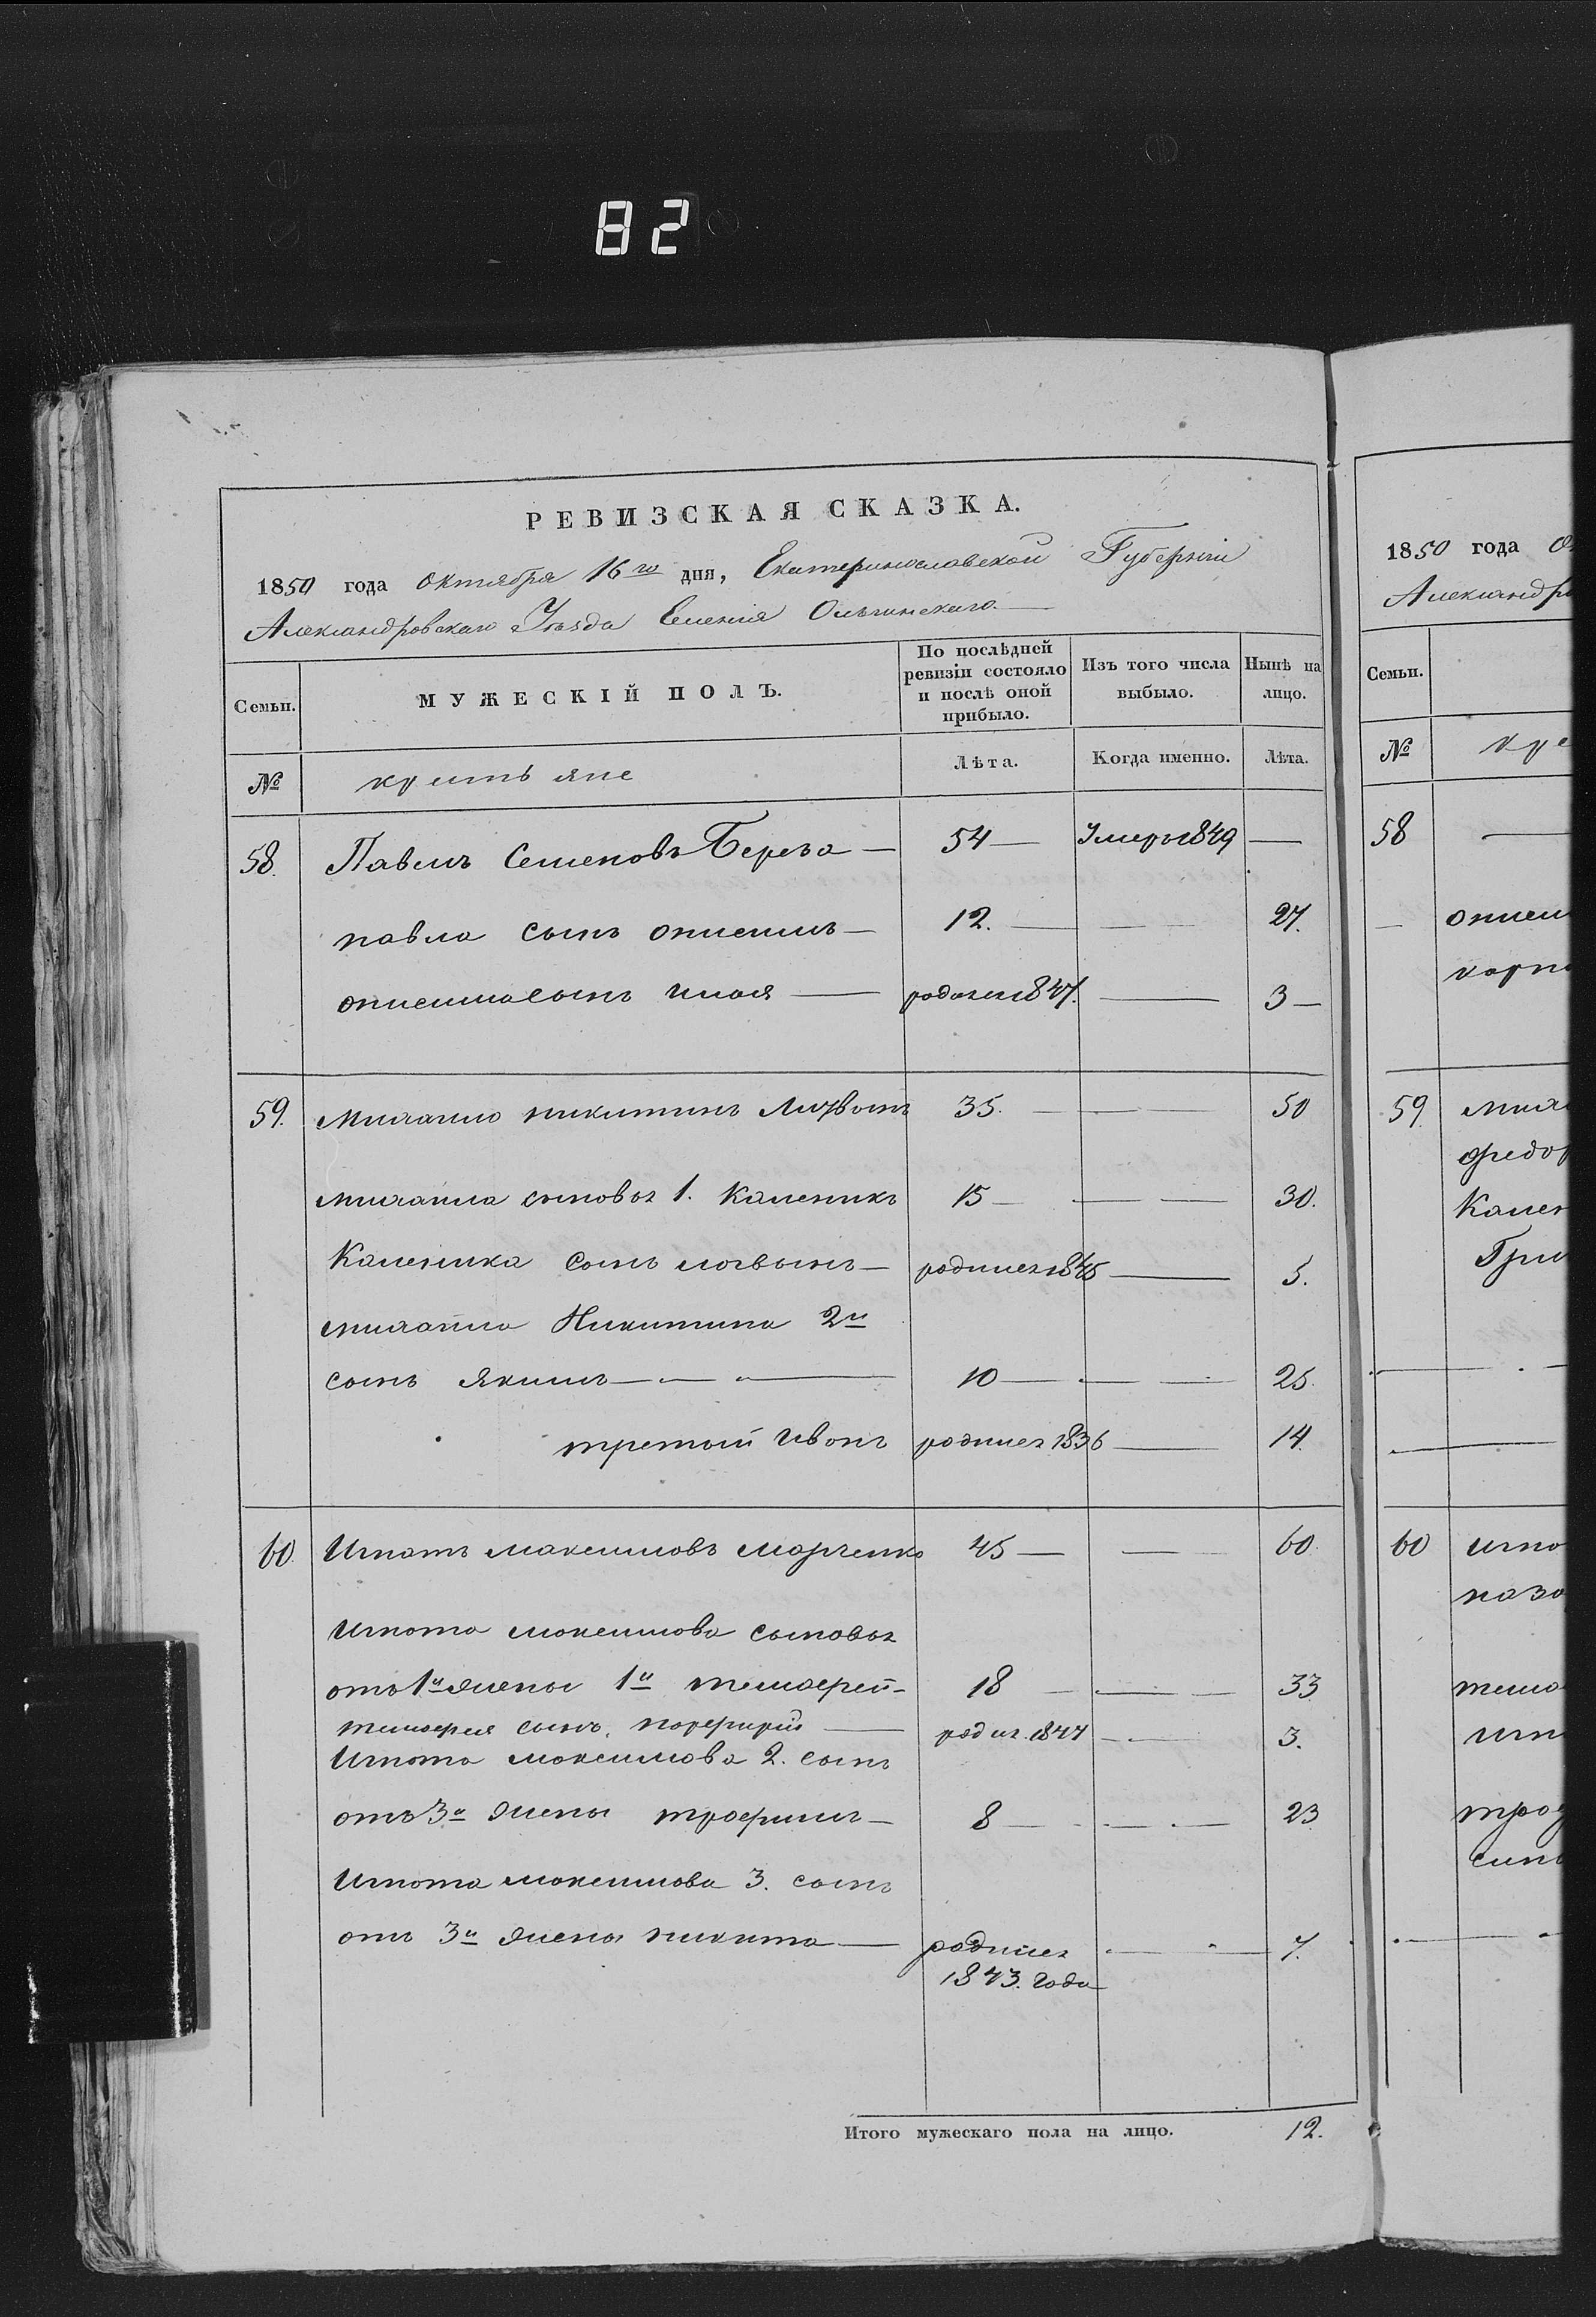 82
РЕВИЗСКАЯ СКАЗКА.
1850 года октября 16го дня, Екатеринославской Губерніи
Александровскаго Уѣзда Селенія Ольгинскаго
Семьи. МУЖЕСКІЙ ПОЛЪ. По послѣдней ревизіи состояло и послѣ оной прибыло. Изъ того числа выбыло. Нынѣ на лицо.
№ крестьяне Лѣта. Когда именно. Лѣта.
58. Павелъ Семеновъ Береза — 54 — Умеръ 1849 —
павла сынъ онисимъ — 12. — 27.
онисима сынъ илья — родился 1847. — 3 —
59. михайло никитинъ 35. — 50
михайла сыновья 1. Каленикъ 15 — 30.
Каленика сынъ логвинъ — родился 1845 — 5.
михайла Никитина 2й
сынъ Якимъ — 10 — 25.
третий иванъ родился 1836 — 14.
60. Игнатъ максимовъ марченко 45 — 60.
Игната максимова сыновья
отъ 1й жены 1й тимофей — 18 — 33
тимофея сынъ порфирій — родил. 1847 — 3.
Игната максимова 2. сынъ
отъ 3й жены трофимъ — 8 — 23
Игната максимова 3. сынъ
отъ 3й жены никита — родился — 7.
1843. года
Итого мужескаго пола на лицо. 12.
1850 года о
Александро
Семьи.
№ кре
58 —
онисим
карп
59. миха
федор
Кален
Гри
60 игна
наза
тимо
игн
троф